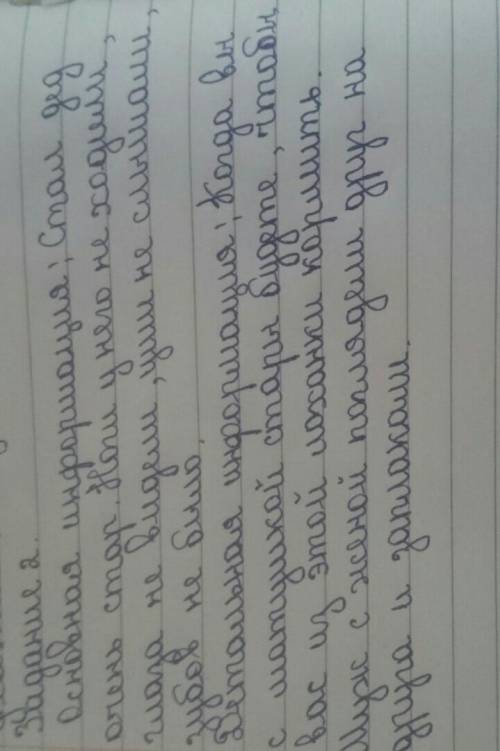 Задание 2.
Основная информация; Стал дед
очень стар. Ноги у него не ходили,
глаза не видели, уши не слышали,
зубов не было.
Детальная информация; Когда вы
с матушкой стары будете, чтобы
вас из этой лоханки кормить.
Муж с женой поглядели друг на
друга и заплакали.